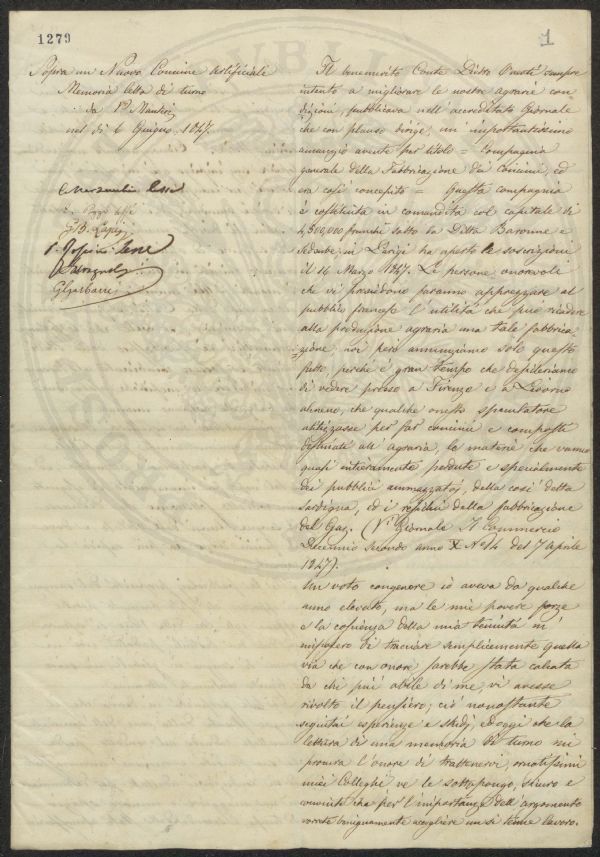 1279
1
Sopra un Nuovo Concime Artificiale
Memoria letta di turno
da
nel dì 6 Giugno 1847.
Il benemerito Conte Digny sempre
intento a migliorare le nostre agrarie con
dizioni, pubblicava nell'accreditato Giornale
che con plauso dirige, un importantissimo
annunzio avente per titolo = Compagnia
generale della Fabbricazione da concimi, ed
era così concepito = Questa compagnia
è costituita in comandita col capitale di
4,500,000 franchi sotto la Ditta Baronne e
in Parigi ha aperto le soscrizioni
il 16 Marzo 1847. Le persone onorevoli
che vi presiedono faranno apprezzare al
pubblico francese l'utilità che può risedere
alla produzione agraria una tale fabbrica
zione; noi però annunziamo solo questo
fatto, perché è gran tempo che desideriamo
di vedere presso a Firenze e a Livorno
almeno, che qualche onesto speculatore
utilizzasse per far concimi e composti
destinati all'agraria, le materie che vanno
quasi intieramente perdute e specialmente
dei pubblici ammazzatoj, della così detta
Sardigna, ed i residui della fabbricazione
del Gaz. (Vi. Giornale Il Commercio
Decennio secondo anno X No. 14 del 7 Aprile
1847).
Un voto congenere io aveva da qualche
anno elevato, ma le mie povere forze
e la coscienza della mia tenuità m'
imposero di tracciare semplicemente quella
via che con onore sarebbe stata calcata
da chi più abile di me, vi avesse
rivolto il pensiero; ciò nonostante
seguitai esperienze e studj, ed oggi che la
lettura di una memoria di turno mi
procura l'onore di trattenervi, ornatissimi
miei Colleghi ve le sottopongo, sicuro e
convinto che per l'importanza dell'argomento
vorrete benignamente accogliere un sì tenue lavoro.